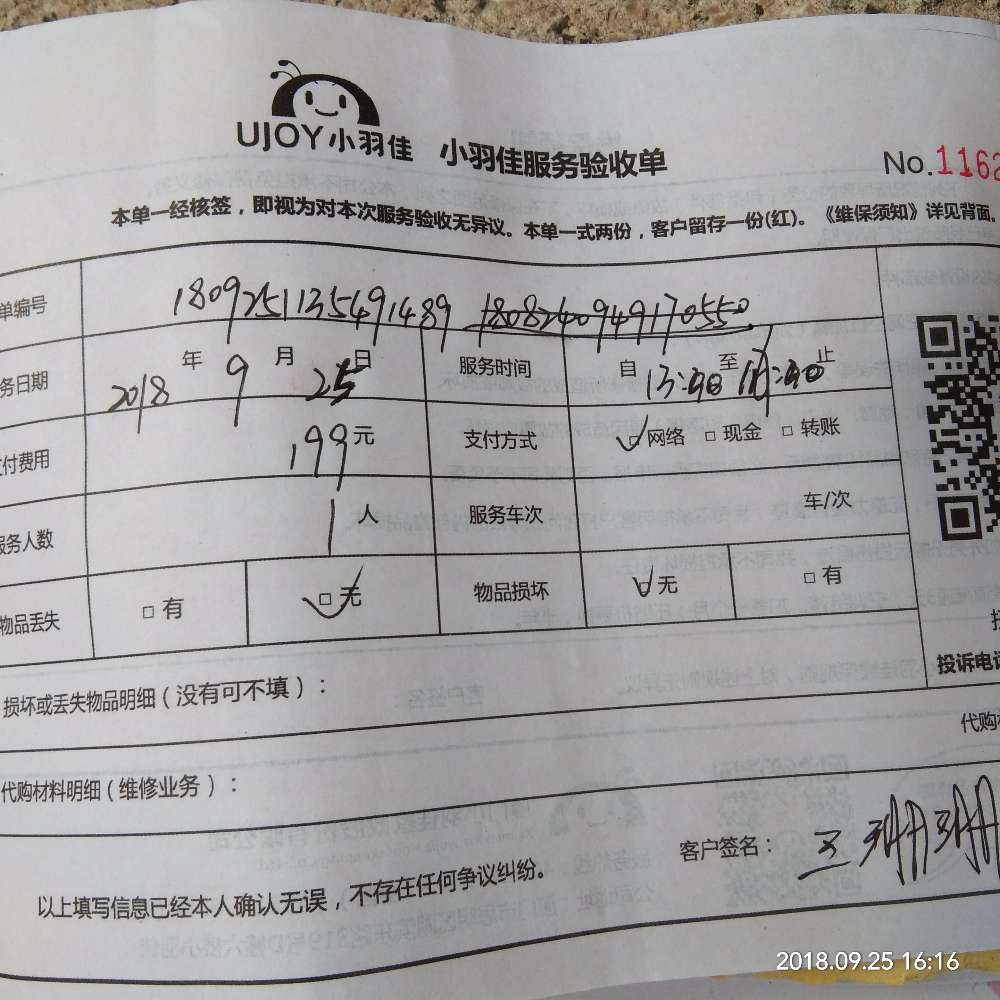 UJOY小羽佳 小羽佳服务验收单 No.1162
本单一经核签，即视为对本次服务验收无异议。本单一式两份，客户留存一份(红)。《维保须知》详见背面。
单编号 1809251135491489 1808240949170550
务日期 2018年9月25日 服务时间 自13:40至 止
付费用 199元 支付方式 ☑网络 □现金 □转账
服务人数 1人 服务车次 车/次
物品丢失 □有 ☑无 物品损坏 ☑无 □有
投诉电话
损坏或丢失物品明细（没有可不填）：
代购材
代购材料明细（维修业务）：
客户签名：王珊珊
以上填写信息已经本人确认无误，不存在任何争议纠纷。
2018.09.25 16:16